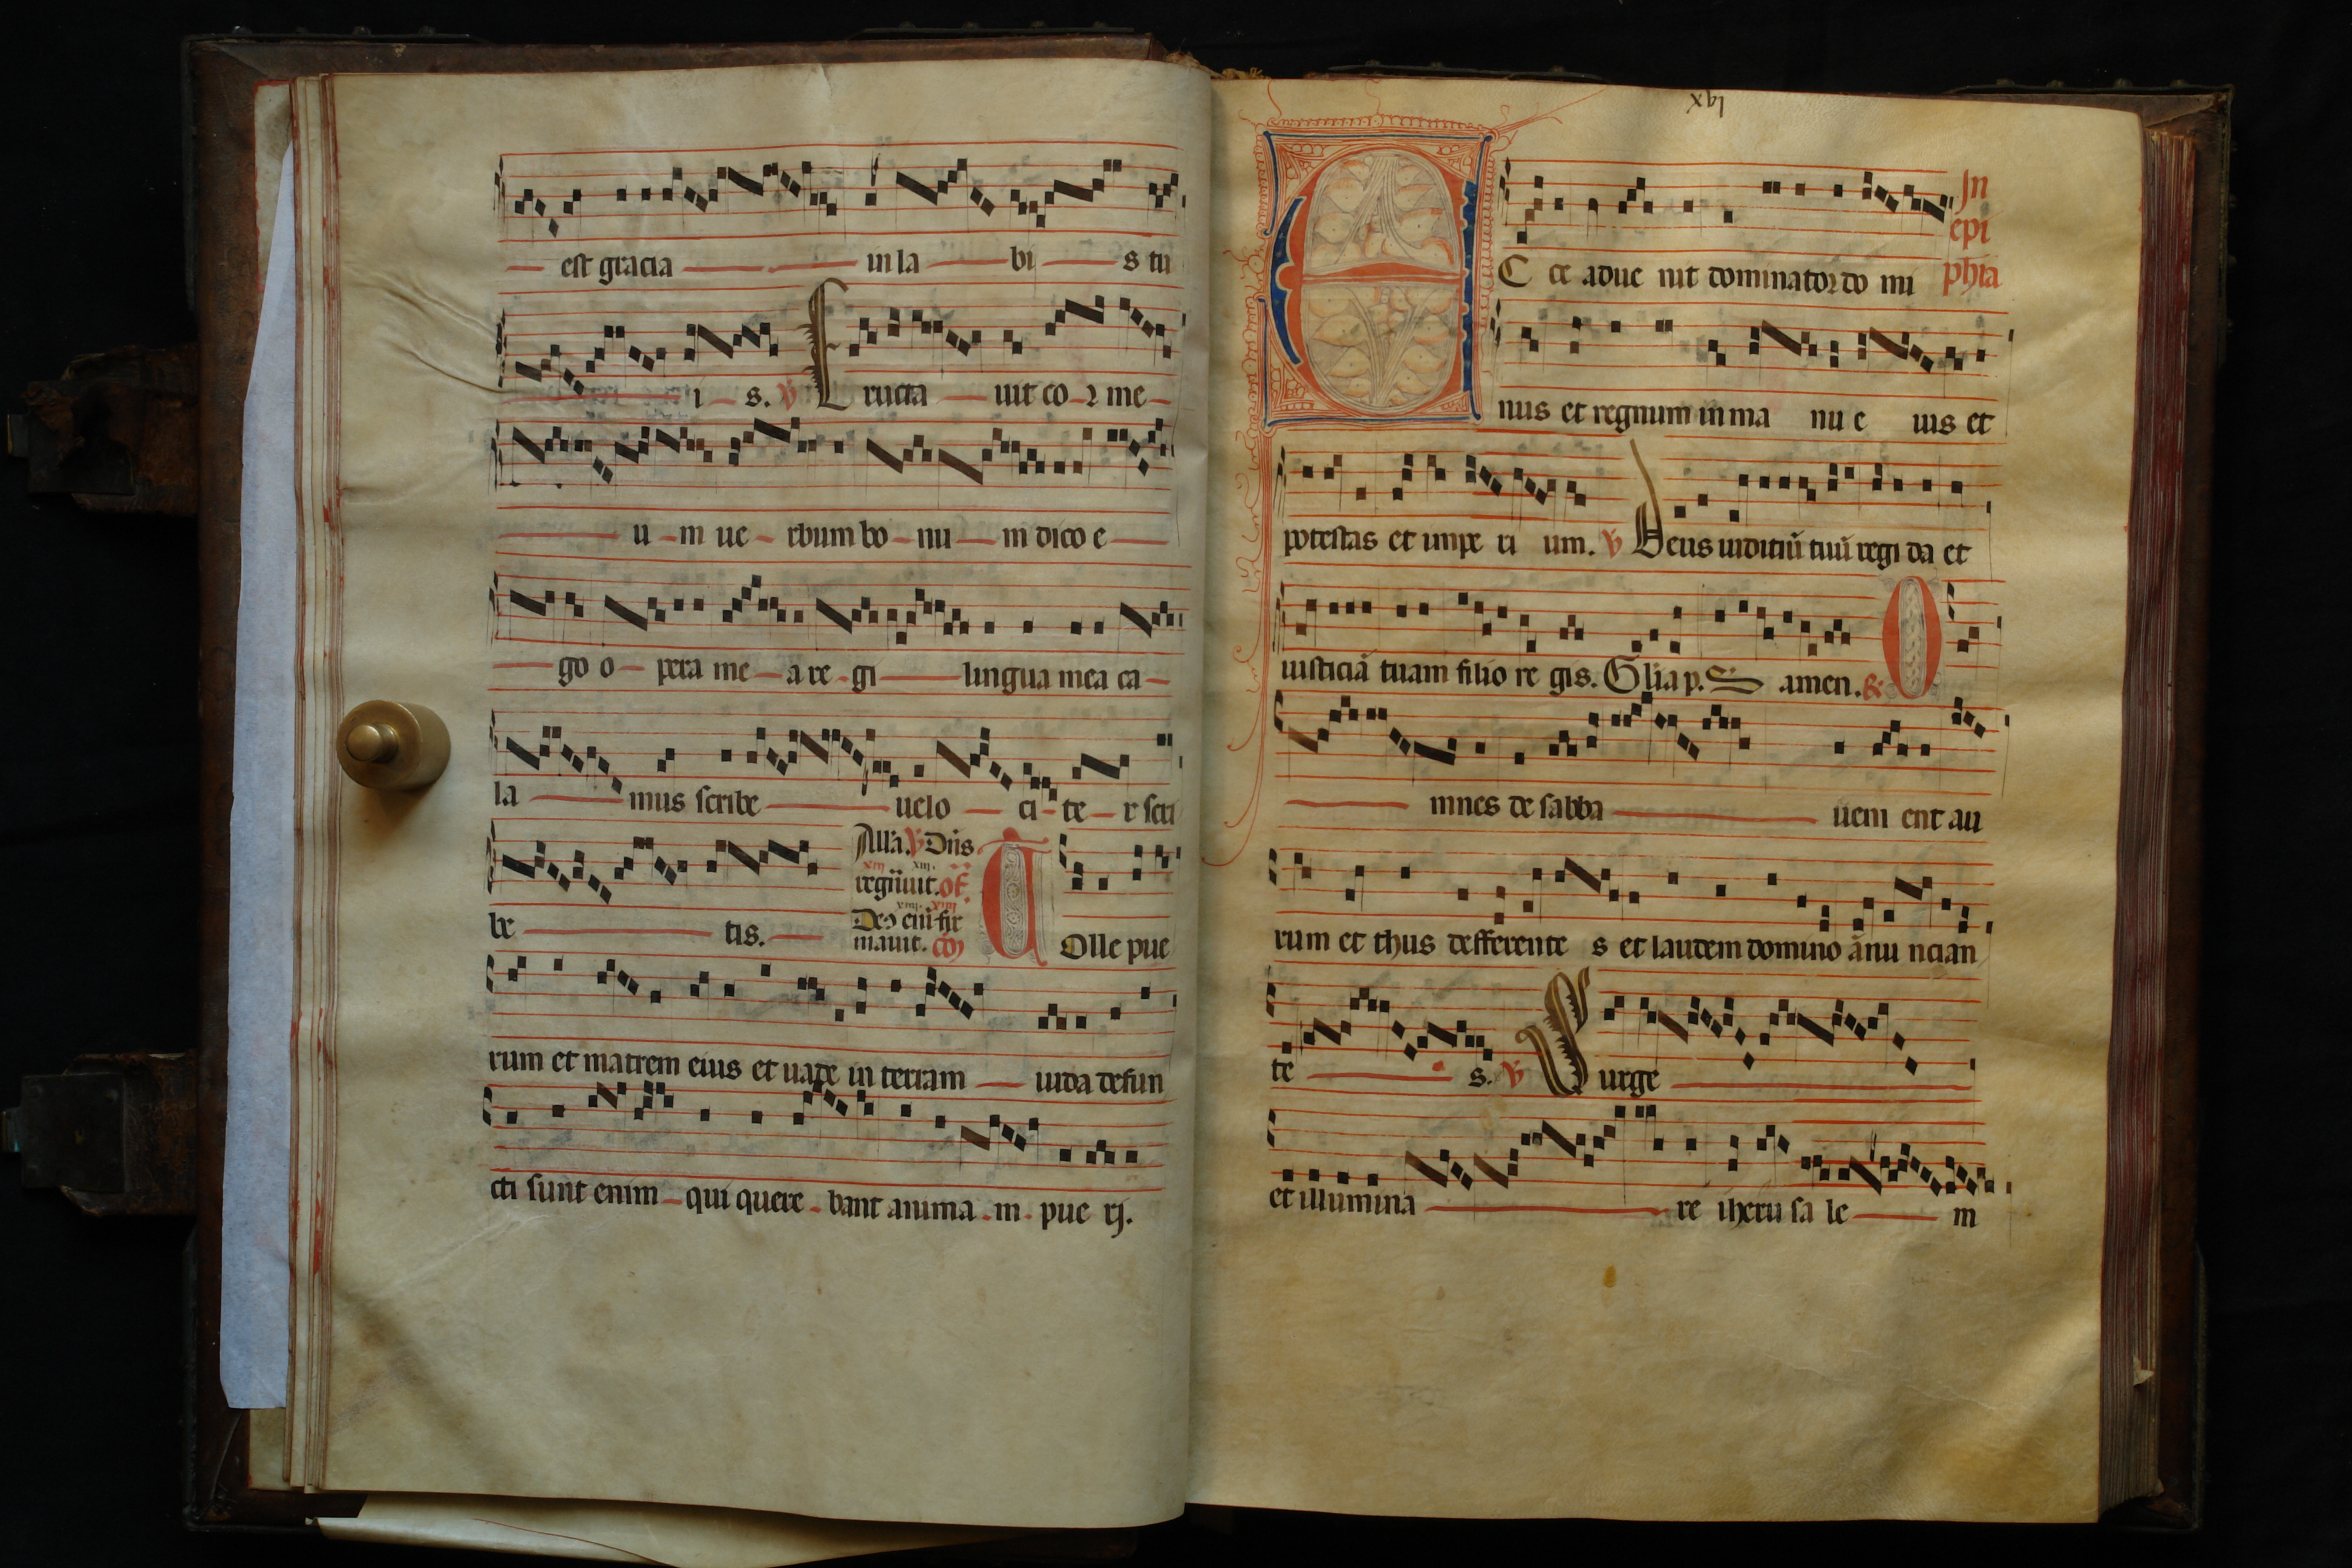 est gracia in la bi s tu
i s. ℣ Eructa uit co r me
u m ue rbum bo nu m dico e
go o pera me a re gi lingua mea ca
la mus scribe uelo ci te r scri
be tis.
Alla. ℣ Dns
xiij xiij.
regnuit. of
xiiij xiiij
Deꝰ eni fir
mauit. cō
Tolle pue
rum et matrem eius et uade in terram iuda defun
cti sunt enim qui quere bant anima m pue rj.
xvj
In
epi
phia
E C ce adue nit dominator do mi
nus et regnum in ma nu e ius et
potestas et impe ri um. ℣ Deus iuditiū tuū regi da et
iusticiā tuam filio re gis. Glia p. amen. O
mnes de sabba ueni ent au
rum et thus defferente s et laudem domino ānu ncian
te s. ℣ Surge
et illumina re iheru sa le m